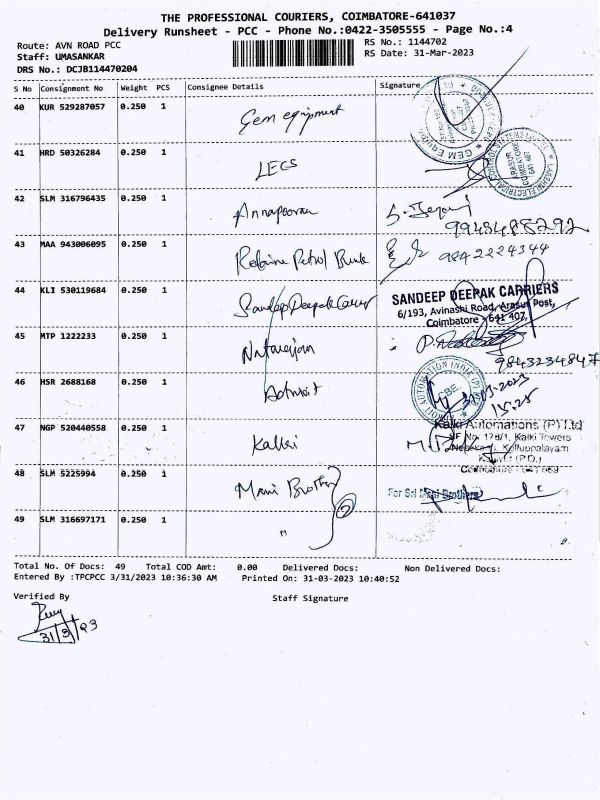 THE PROFESSIONAL COURIERS, COIMBATORE-641037
Delivery Runsheet - PCC - Phone No.:0422-3505555 - Page No.:4
Route: AVN ROAD PCC
RS No.: 1144702
Staff: UMASANKAR
RS Date: 31-Mar-2023
DRS No.: DCJB114470204
S No Consignment No Weight PCS Consignee Details Signature
40 KUR 529287057 0.250 1 Gem equipment
41 HRD 50326284 0.250 1 LECS
42 SLM 316796435 0.250 1 Annapoorna
9943488292
43 MAA 943006095 0.250 1 Petrol Bunk 9842224344
44 KLI 530119684 0.250 1 Sandeep Deepak Carrier
SANDEEP DEEPAK CARRIERS
6/193, Avinashi Road, Arasur Post,
Coimbatore - 641 407.
45 MTP 1222233 0.250 1 Natarajan
9843234847
46 HSR 2688168 0.250 1
31/03/2023
15:25
47 NGP 520440558 0.250 1 Kalki
Kalki Automations (P) Ltd
SF No. 178/1, Kalki Towers
48 SLM 5225994 0.250 1 Mani Brother
For Sri Mani Brothers
49 SLM 316697171 0.250 1 "
Total No. Of Docs: 49 Total COD Amt: 0.00 Delivered Docs: Non Delivered Docs:
Entered By :TPCPCC 3/31/2023 10:36:30 AM Printed On: 31-03-2023 10:40:52
Verified By
Staff Signature
31/3/23